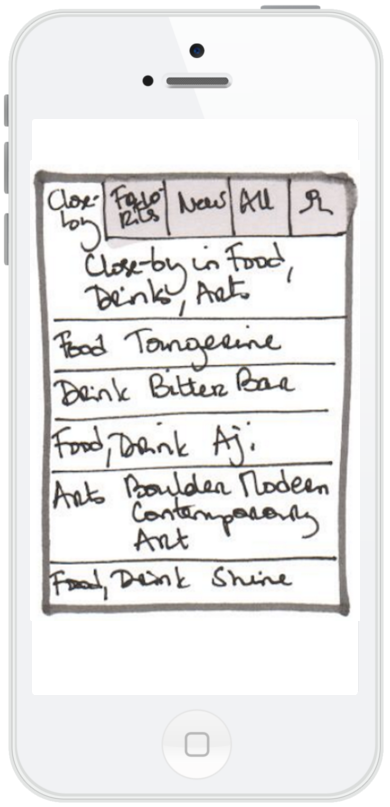 Close-
by
Favo-
rits
New
All
Close-by in Food,
Drinks, Arts
Food Tangerine
Drink Bitter Bar
Food, Drink Aji
Arts Boulder Modern
Contemporary
Art
Food, Drink Shine